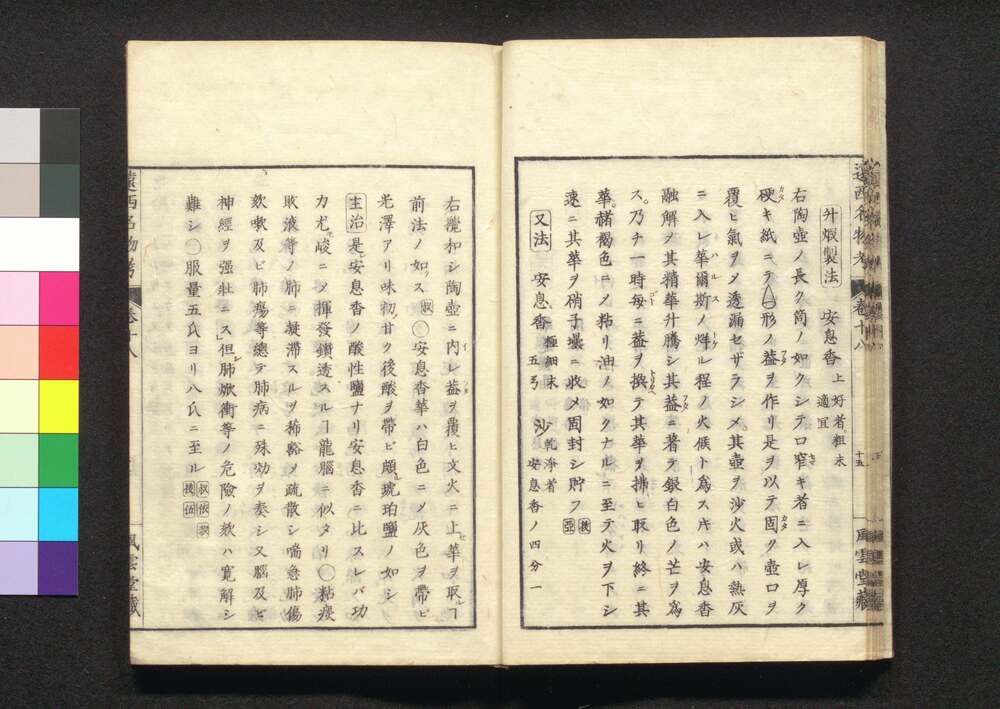 升煅製法 安息香 上好者粗末 適宜
右陶壺ノ長ク筒ノ如クシテ口窄キ者ニ入レ厚ク
硬キ紙ニテ形ノ葢ヲ作リ是ヲ以テ固ク壺口ヲ
覆ヒ氣ヲメ透漏セザラシメ其壺ヲ沙火或ハ熱灰
ニ入レ華爾斯ノ烊レ程ノ火候ト爲ス片ハ安息香
融解メ其精華升騰シ其葢ニ著テ銀白色ノ芒ヲ爲
ス乃チ一時每ニ葢ヲ換テ其華ヲ拂ヒ取リ終ニ其
華褐色ニメ粘リ油ノ如クナルニ至テ火ヲ下シ
速ニ其華ヲ硝子壜ニ收メ固封シ貯フ
又法 安息香 極細末 五弓 沙 乾淨者 安息香ノ四分一
遠西名物考 卷十八 十五 風雲堂藏
右攪和シ陶壺ニ内レ葢ヲ覆ヒ文火ニ上セ華ヲ取ルヿ
前法ノ如ス 叔 ○安息香華ハ白色ニメ灰色ヲ帶ビ
光澤アリ味初甘ク後酸ヲ帶ビ頗琥珀鹽ノ如シ
主治 是安息香ノ酸性鹽ナリ安息香ニ比スレバ功
力尤峻ニメ揮發鑽透スルヿ龍腦ニ似タリ○粘痰
敗液等ノ肺ニ凝滯スルヲ稀豁メ疏散シ喘急肺傷
欬嗽及ビ肺瘍等總テ肺病ニ殊効ヲ奏シ又腦及ビ
神經ヲ强壯ニス但肺焮衝等ノ危險ノ欬ハ寬解シ
難シ○服量五氏ヨリ八氏ニ至ル
遠西名物考 卷十八 風雲堂藏